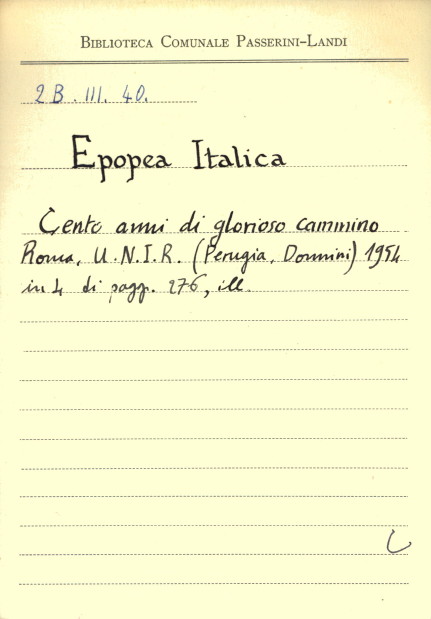 BIBLIOTECA COMUNALE PASSERINI-LANDI
2 B. III. 40.
Epopea Italica
Cento anni di glorioso cammino
Roma, U.N.I.R. (Perugia, Donnini) 1954
in 4 di pagg. 276, ill.